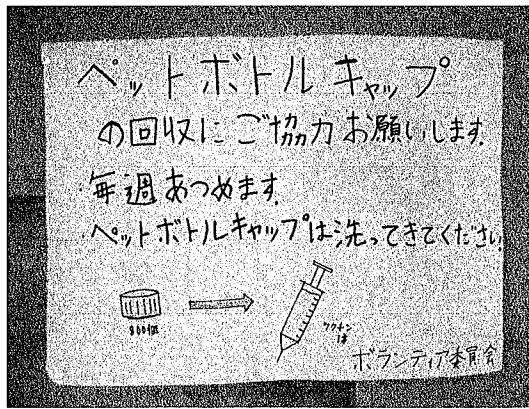 ペットボトルキャップ
の回収にご協力お願いします。
・毎週あつめます。
・ペットボトルキャップは洗ってきてください
800個
ワクチン
ボランティア委員会